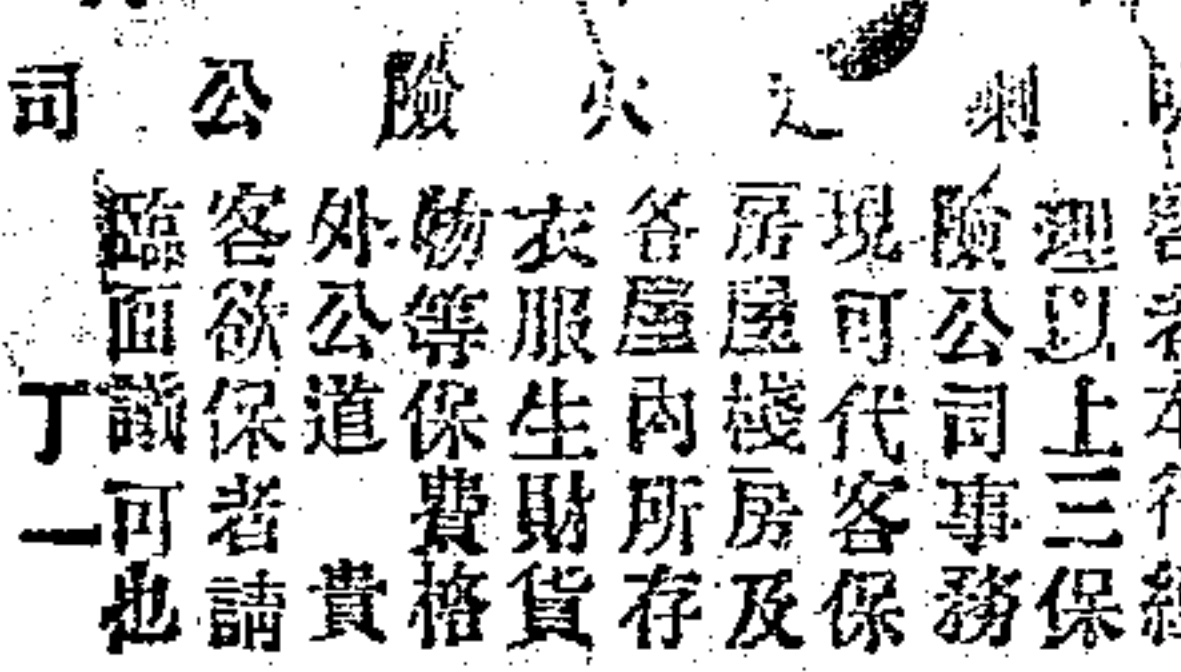 喇之火險公司
啓者本行經
理以上三保
險公司事務
現可代客保
房屋棧房及
各屋內所存
衣服生財貨
物等保費格
外公道 貴
客欲保者請
臨面議可也
丁一